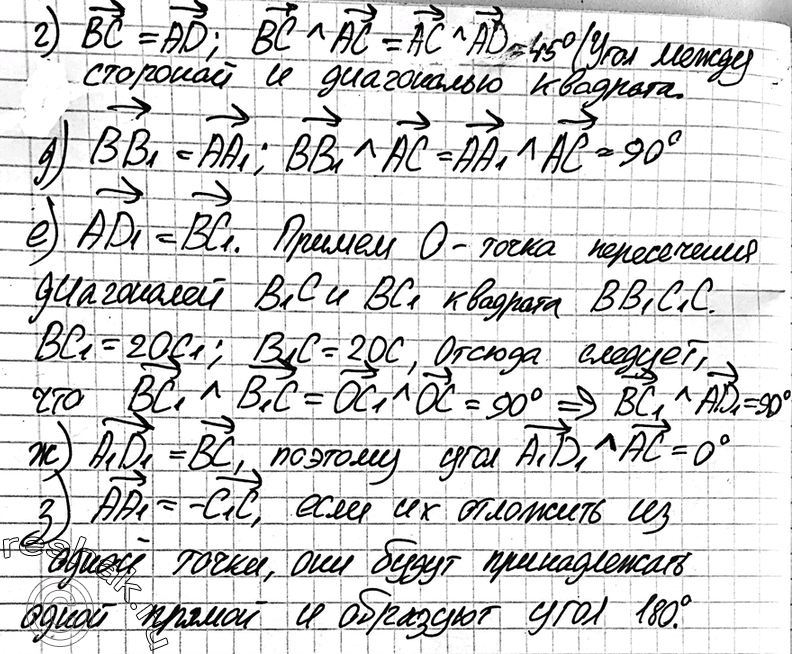 г) BC = AD; BC ^ AC = AC ^ AD = 45° (Угол между
стороной и диагональю квадрата.
д) BB₁ = AA₁; BB₁ ^ AC = AA₁ ^ AC = 90°
е) AD₁ = BC₁. Примем O - точка пересечения
диагоналей B₁C и BC₁ квадрата BB₁C₁C.
BC₁ = 2OC₁; B₁C = 2OC, Отсюда следует,
что BC₁ ^ B₁C = OC₁ ^ OC = 90° ⇒ BC₁ ^ AD₁ = 90°
ж) A₁D₁ = BC, поэтому угол A₁D₁ ^ AC = 0°
з) AA₁ = -C₁C, если их отложить из
одной точки, они будут принадлежать
одной прямой и образуют угол 180°.
reshak.ru